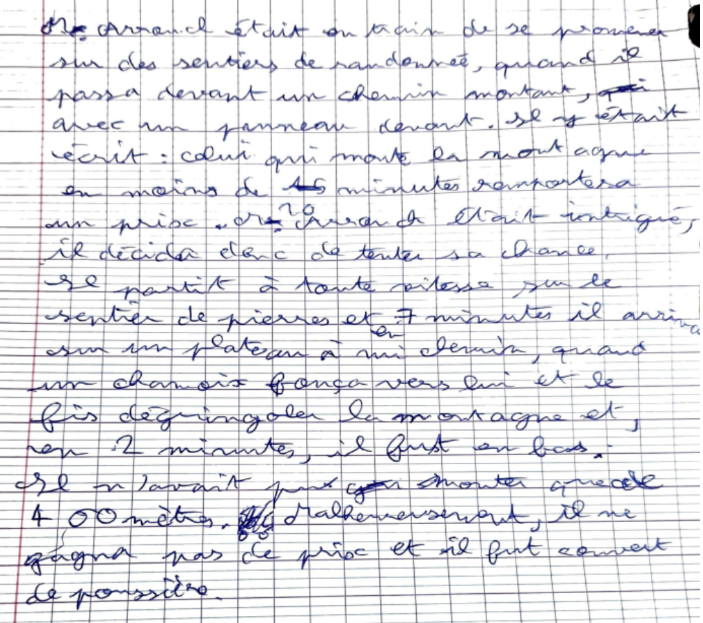 Mr Arrauch était en train de se promener
sur des sentiers de randonneé, quand il
passa devant un chemin montant,
avec un panneau devant. Il y était
écrit : celui qui monte la montagne
en moins de 20 minutes remportera
un prix. Mr Arrauch était intrigué,
il décida donc de tenter sa chance.
Il partit à toute vitesse sur le
sentier de pierres et en 7 minutes il arriva
sur un plateau à mi chemin, quand
un chamois fonça vers lui et le
fis dégringoler la montagne et,
en 2 minutes, il fust en bas.
Il n'avait pux monter que de
400 mètres. Malheureusement, il ne
gagna pas de prix et il fut couvert
de poussière.